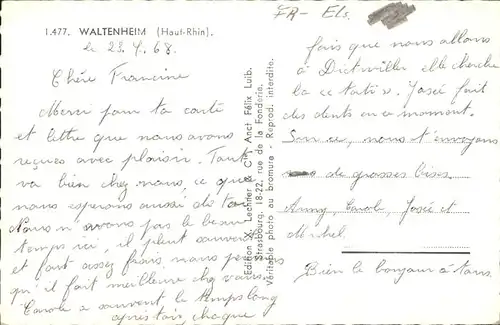 FR- Els.
1.477. WALTENHEIM (Haut-Rhin).
le 23.4.68
Chère Francine
Merci pour ta carte
et lettre que nous avons
reçues avec plaisir. Tout
va bien chez nous, ce que
nous esperons aussi de toi
Nous n'avons pas le beau
temps ici, il pleut souvent
et fait assez frais nous pensons
qu'il fait meilleure chez vous.
Carole a souvent le temps long
après toi, chaque
Edition X. Lechner & Cie, Anct Félix Luib.
Strasbourg, 18-22, rue de la Fonderie.
Véritable photo au bromure - Reprod. interdite.
fois que nous allons
à Dietwiller elle cherche
la "tati". Josée fait
des dents en ce moment.
Sur ce, nous t'envoyons
de grosses bises
Anny, Carole, Josée et
Michel
Bien le bonjour à tous.